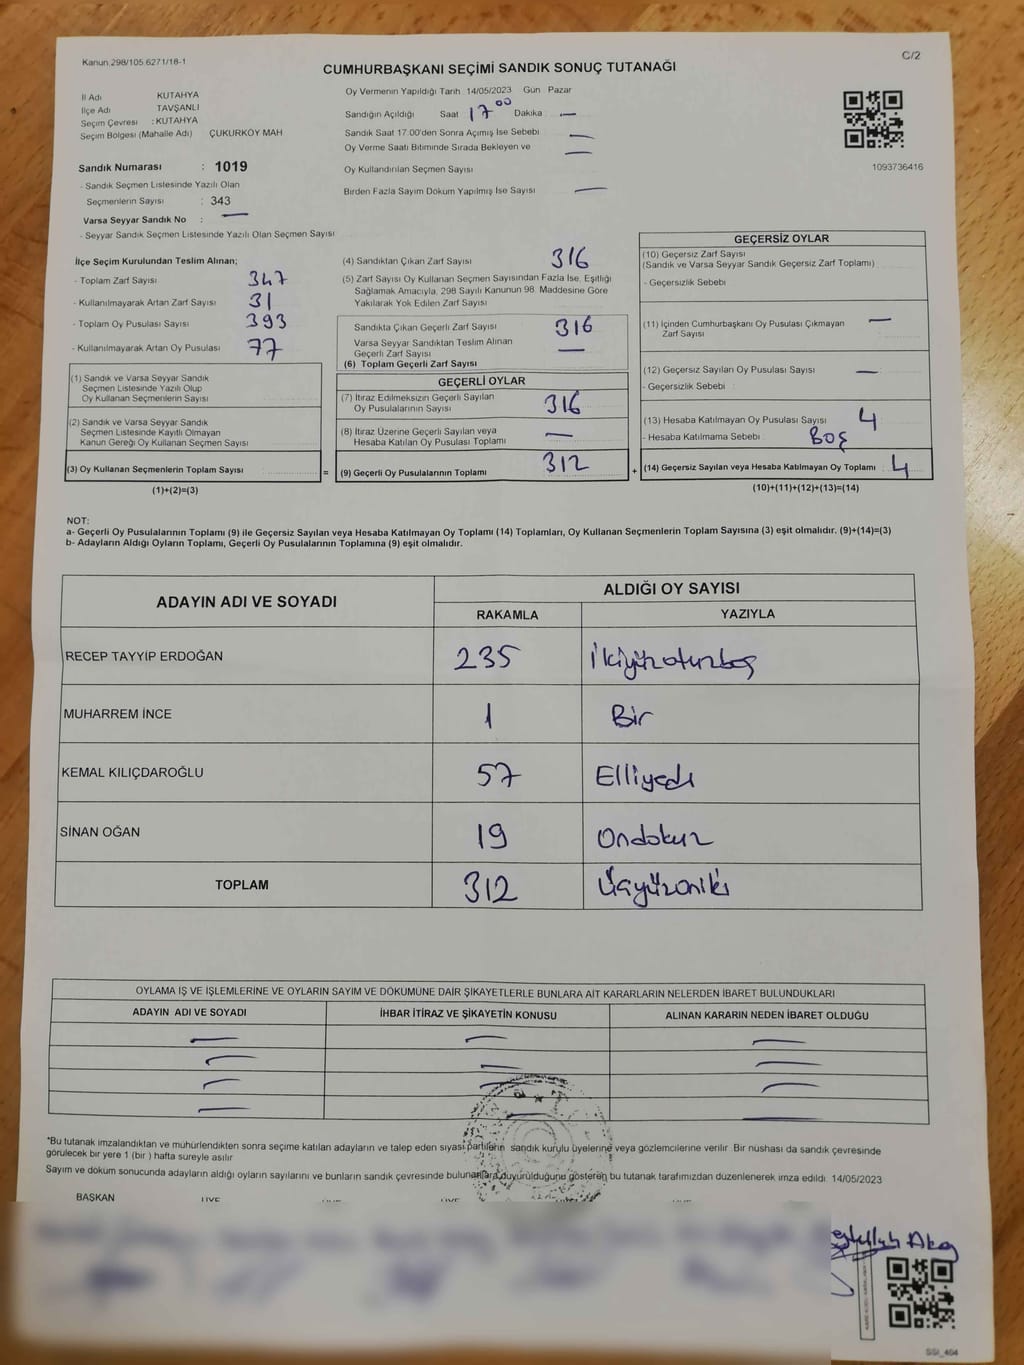 Kanun.298/105.6271/18-1
C/2
CUMHURBAŞKANI SEÇİMİ SANDIK SONUÇ TUTANAĞI
İl Adı KÜTAHYA
İlçe Adı TAVŞANLI
Seçim Çevresi : KÜTAHYA
Seçim Bölgesi (Mahalle Adı) ÇUKURKÖY MAH
Oy Vermenin Yapıldığı Tarih 14/05/2023 Gün Pazar
Sandığın Açıldığı Saat 17 00 Dakika : —
Sandık Saat 17.00'den Sonra Açımış İse Sebebi —
Oy Verme Saati Bitiminde Sırada Bekleyen ve —
Oy Kullandırılan Seçmen Sayısı
Birden Fazla Sayım Döküm Yapılmış İse Sayısı —
1093736416
Sandık Numarası : 1019
- Sandık Seçmen Listesinde Yazılı Olan
Seçmenlerin Sayısı : 343
Varsa Seyyar Sandık No : —
- Seyyar Sandık Seçmen Listesinde Yazılı Olan Seçmen Sayısı
İlçe Seçim Kurulundan Teslim Alınan;
- Toplam Zarf Sayısı 347
- Kullanılmayarak Artan Zarf Sayısı 31
- Toplam Oy Pusulası Sayısı 393
- Kullanılmayarak Artan Oy Pusulası 77
(1) Sandık ve Varsa Seyyar Sandık
Seçmen Listesinde Yazılı Olup
Oy Kullanan Seçmenlerin Sayısı
(2) Sandık ve Varsa Seyyar Sandık
Seçmen Listesinde Kayıtlı Olmayan
Kanun Gereği Oy Kullanan Seçmen Sayısı
(3) Oy Kullanan Seçmenlerin Toplam Sayısı
=
(1)+(2)=(3)
(4) Sandıktan Çıkan Zarf Sayısı 316
(5) Zarf Sayısı Oy Kullanan Seçmen Sayısından Fazla İse, Eşitliği
Sağlamak Amacıyla, 298 Sayılı Kanunun 98. Maddesine Göre
Yakılarak Yok Edilen Zarf Sayısı
Sandıkta Çıkan Geçerli Zarf Sayısı 316
Varsa Seyyar Sandıktan Teslim Alınan
Geçerli Zarf Sayısı —
(6) Toplam Geçerli Zarf Sayısı
GEÇERLİ OYLAR
(7) İtiraz Edilmeksizin Geçerli Sayılan
Oy Pusulalarının Sayısı 316
(8) İtiraz Üzerine Geçerli Sayılan veya
Hesaba Katılan Oy Pusulası Toplamı —
(9) Geçerli Oy Pusulalarının Toplamı 312
+
GEÇERSİZ OYLAR
(10) Geçersiz Zarf Sayısı
(Sandık ve Varsa Seyyar Sandık Geçersiz Zarf Toplamı)
- Geçersizlik Sebebi
(11) İçinden Cumhurbaşkanı Oy Pusulası Çıkmayan —
Zarf Sayısı
(12) Geçersiz Sayılan Oy Pusulası Sayısı —
- Geçersizlik Sebebi :
(13) Hesaba Katılmayan Oy Pusulası Sayısı 4
- Hesaba Katılmama Sebebi : Boş
(14) Geçersiz Sayılan veya Hesaba Katılmayan Oy Toplamı : 4
(10)+(11)+(12)+(13)=(14)
NOT:
a- Geçerli Oy Pusulalarının Toplamı (9) ile Geçersiz Sayılan veya Hesaba Katılmayan Oy Toplamı (14) Toplamları, Oy Kullanan Seçmenlerin Toplam Sayısına (3) eşit olmalıdır. (9)+(14)=(3)
b- Adayların Aldığı Oyların Toplamı, Geçerli Oy Pusulalarının Toplamına (9) eşit olmalıdır.
ADAYIN ADI VE SOYADI
ALDIĞI OY SAYISI
RAKAMLA YAZIYLA
RECEP TAYYİP ERDOĞAN 235 İkiyüzotuzbeş
MUHARREM İNCE 1 Bir
KEMAL KILIÇDAROĞLU 57 Elliyedi
SİNAN OĞAN 19 Ondokuz
TOPLAM 312 Üçyüzoniki
OYLAMA İŞ VE İŞLEMLERİNE VE OYLARIN SAYIM VE DÖKÜMÜNE DAİR ŞİKAYETLERLE BUNLARA AİT KARARLARIN NELERDEN İBARET BULUNDUKLARI
ADAYIN ADI VE SOYADI İHBAR İTİRAZ VE ŞİKAYETİN KONUSU ALINAN KARARIN NEDEN İBARET OLDUĞU
*Bu tutanak imzalandıktan ve mühürlendikten sonra seçime katılan adayların ve talep eden siyasi partilerin sandık kurulu üyelerine veya gözlemcilerine verilir. Bir nüshası da sandık çevresinde
görülecek bir yere 1 (bir) hafta süreyle asılır
Sayım ve döküm sonucunda adayların aldığı oyların sayılarını ve bunların sandık çevresinde bulunanlara duyurulduğunu gösteren bu tutanak tarafımızdan düzenlenerek imza edildi. 14/05/2023
BAŞKAN
SSI_404